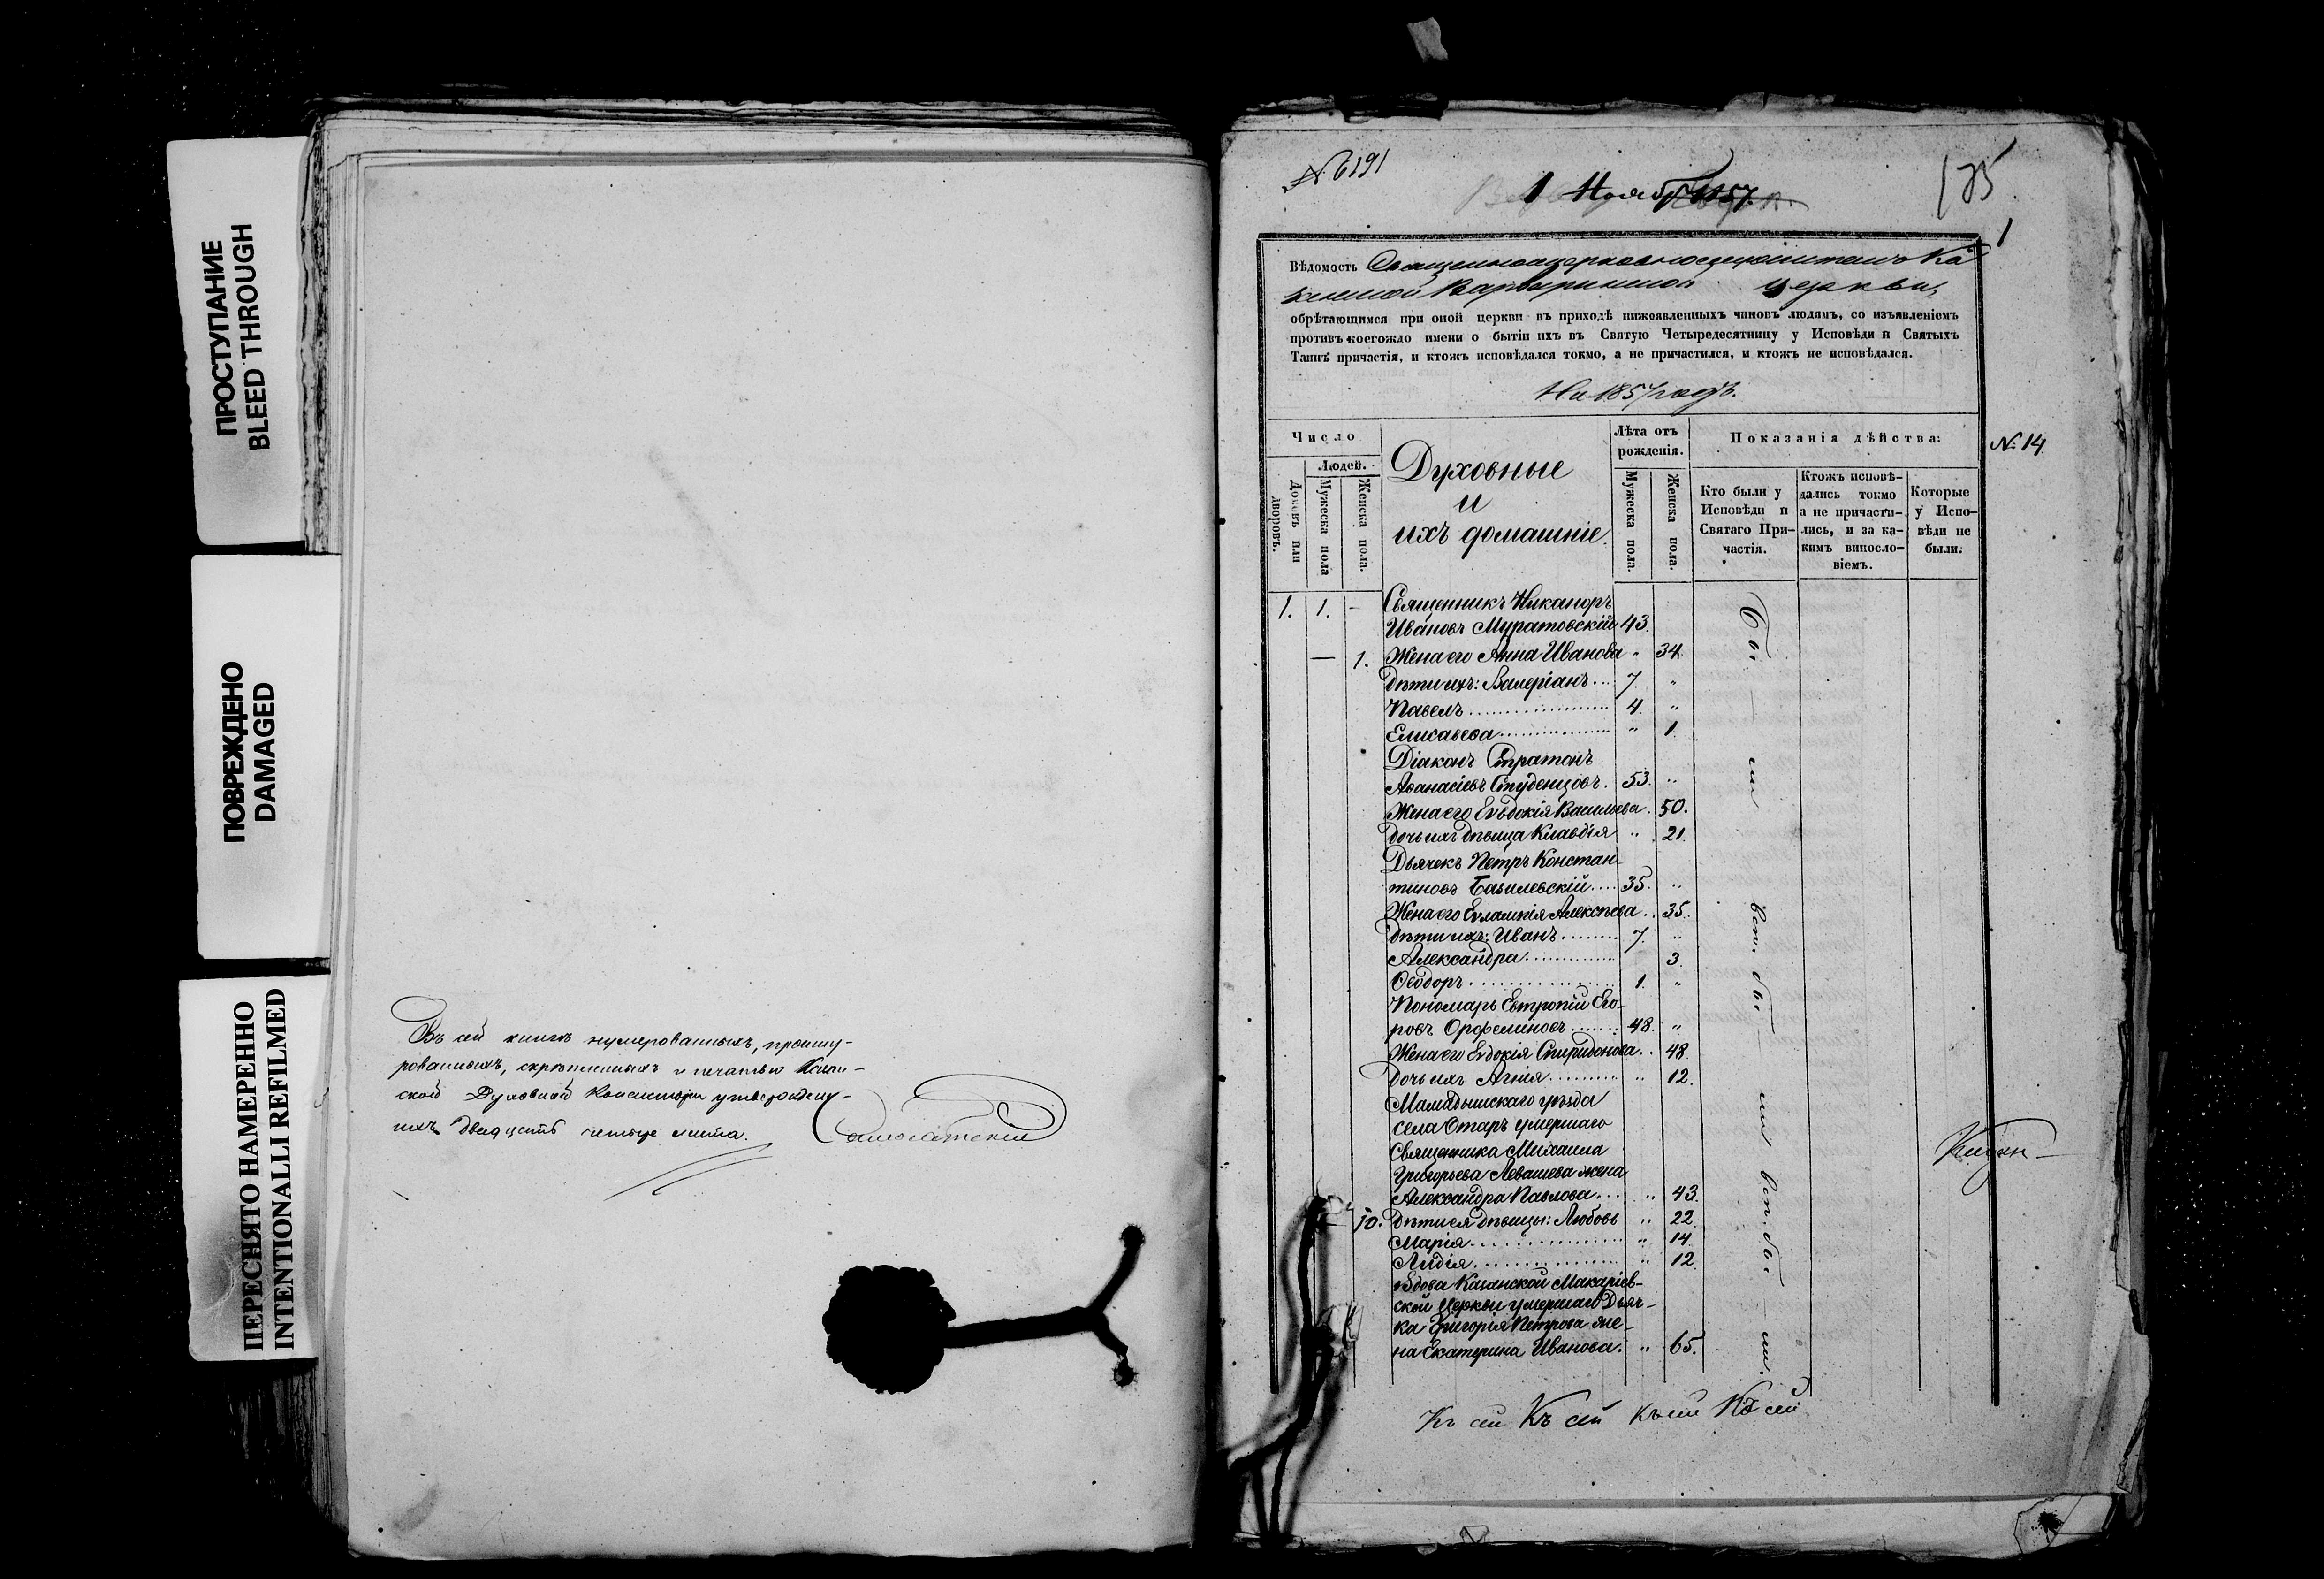 ПРОСТУПАНИЕ
BLEED THROUGH
ПОВРЕЖДЕНО
DAMAGED
ПЕРЕСНЯТО НАМЕРЕННО
INTENTIONALLI REFILMED
Въ сей книгѣ нумерованныхъ, прошну-
рованныхъ, скрѣпленныхъ и печатью Казан-
ской Духовной Консисторіи утвержден-
ныхъ двадцать четыре листа.
№ 6191
1 Ноября 1857.
135
1
Вѣдомость Священноцерковнослужителей Ка
занской Варваринской церкви,
обрѣтающимся при оной церкви въ приходѣ нижоявленныхъ чиновъ людямъ, со изъявленіемъ
противъ коегождо имени о бытіи ихъ въ Святую Четыредесятницу у Исповѣди и Святыхъ
Таинъ причастія, и ктожъ исповѣдался токмо, а не причастился, и ктожъ не исповѣдался.
На 1857 годъ.
№ 14
Число
Людей.
Домовъ или дворовъ.
Мужеска пола
Женска пола.
Духовные
и
ихъ домашніе.
Лѣта отъ рожденія.
Мужеска пола.
Женска пола.
Показанія дѣйства:
Кто были у Исповѣди и Святаго При-частія.
Ктожъ исповѣ-дались токмо а не причасти-лись, и за ка-кимъ винослo-віемъ.
Которые у Испо-вѣди не были.
1. 1. - Священникъ Никаноръ
Ивановъ Муратовскій 43.
— 1. Жена его Анна Иванова " 34.
Дѣти ихъ: Валеріанъ... 7. "
Павелъ 4. "
Елисавеѳа " 1.
Діаконъ Стратонъ
Аѳанасіевъ Студенцовъ. 53. "
Жена его Евдокія Васильева . 50.
Дочь ихъ дѣвица Клавдія " 21.
Дьячекъ Петръ Констан-
тиновъ Базилевскій.... 35. "
Жена его Евлампія Алексѣева . . 35.
Дѣти ихъ: Иванъ 7. "
Александра 3.
Ѳеодоръ 1. "
Пономарь Евтропій Его-
ровъ Орфелиновъ 48. "
Жена его Евдокія Спиридонова . . 48.
Дочь ихъ Агнія " 12.
Мамадышскаго уѣзда
села Отаръ умершаго
Священника Михаила
Григорьева Левашева жена
Александра Павлова... " 43.
10. Дѣти ея дѣвицы: Любовь " 22.
Марія " 14.
Лидія " 12.
вдова Казанской Макаріев-
ской Церкви умершаго Дьяч-
ка Григорія Петрова же-
на Екатерина Иванова. " 65.
Бы — ли всп. бы — ли всп. бы — ли.
Къ сей Къ сей Къ сей Къ сей